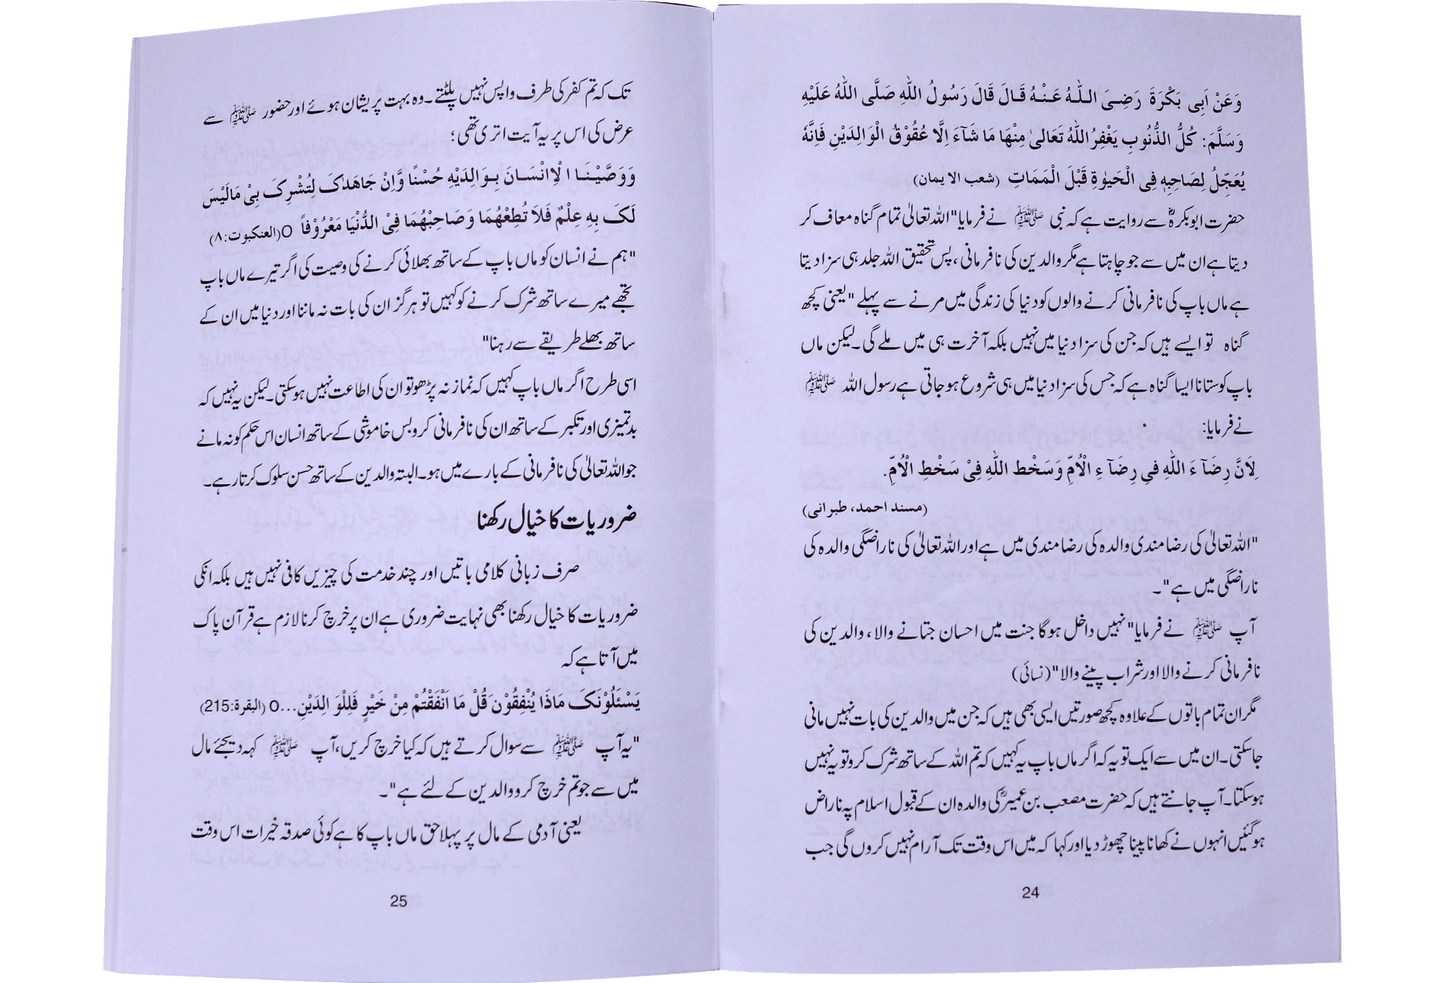 وَعَنْ اَبِی بَکْرَةَ رَضِیَ اللّٰهُ عَنْهُ قَالَ قَالَ رَسُولُ اللّٰهِ صَلَّی اللّٰهُ عَلَیْهِ
وَسَلَّمَ: کُلُّ الذُّنُوبِ یَغْفِرُ اللّٰهُ تَعَالیٰ مِنْهَا مَا شَآءَ اِلَّا عُقُوْقَ الْوَالِدَیْنِ فَاِنَّهٗ
یُعَجِّلُ لِصَاحِبِهٖ فِی الْحَیٰوةِ قَبْلَ الْمَمَاتِ (شعب الایمان)
حضرت ابوبکرہؓ سے روایت ہے کہ نبی ﷺ نے فرمایا"اللہ تعالیٰ تمام گناہ معاف کر
دیتا ہے ان میں سے جو چاہتا ہے مگر والدین کی نافرمانی، پس تحقیق اللہ جلد ہی سزا دیتا
ہے ماں باپ کی نافرمانی کرنے والوں کو دنیا کی زندگی میں مرنے سے پہلے"یعنی کچھ
گناہ تو ایسے ہیں کہ جن کی سزا دنیا میں نہیں بلکہ آخرت ہی میں ملے گی۔لیکن ماں
باپ کو ستانا ایسا گناہ ہے کہ جس کی سزا دنیا میں ہی شروع ہو جاتی ہے رسول اللہ ﷺ
نے فرمایا:
لِاَنَّ رِضَآءَ اللّٰهِ فِی رِضَآءِ الْاُمِّ وَسَخْط اللّٰهِ فِیْ سَخْطِ الْاُمِّ.
(مسند احمد، طبرانی)
"اللہ تعالیٰ کی رضامندی والدہ کی رضامندی میں ہے اور اللہ تعالیٰ کی ناراضگی والدہ کی
ناراضگی میں ہے"۔
آپ ﷺ نے فرمایا"نہیں داخل ہوگا جنت میں احسان جتانے والا، والدین کی
نافرمانی کرنے والا اور شراب پینے والا"(نسائی)
مگر ان تمام باتوں کے علاوہ کچھ صورتیں ایسی بھی ہیں کہ جن میں والدین کی بات نہیں مانی
جا سکتی۔ان میں سے ایک تو یہ کہ اگر ماں باپ یہ کہیں کہ تم اللہ کے ساتھ شرک کرو تو یہ نہیں
ہو سکتا۔آپ جانتے ہیں کہ حضرت مصعب بن عمیرؓ کی والدہ ان کے قبول اسلام پہ ناراض
ہو گئیں انہوں نے کھانا پینا چھوڑ دیا اور کہا کہ میں اس وقت تک آرام نہیں کروں گی جب
24
تک کہ تم کفر کی طرف واپس نہیں پلٹتے۔وہ بہت پریشان ہوئے اور حضور ﷺ سے
عرض کی اس پر یہ آیت اتری تھی؛
وَوَصَّیْنَا الْاِنْسَانَ بِوَالِدَیْهِ حُسْنًا وَّاِنْ جَاهَدٰکَ لِتُشْرِکَ بِیْ مَالَیْسَ
لَکَ بِهٖ عِلْمٌ فَلَا تُطِعْهُمَا وَصَاحِبْهُمَا فِیْ الدُّنْیَا مَعْرُوْفاً O(العنکبوت:۸)
"ہم نے انسان کو ماں باپ کے ساتھ بھلائی کرنے کی وصیت کی اگر تیرے ماں باپ
تجھے میرے ساتھ شرک کرنے کو کہیں تو ہرگز ان کی بات نہ ماننا اور دنیا میں ان کے
ساتھ بھلے طریقے سے رہنا"
اسی طرح اگر ماں باپ کہیں کہ نماز نہ پڑھو تو ان کی اطاعت نہیں ہو سکتی۔لیکن یہ نہیں کہ
بدتمیزی اور تکبر کے ساتھ ان کی نافرمانی کرو بس خاموشی کے ساتھ انسان اس حکم کو نہ مانے
جو اللہ تعالیٰ کی نافرمانی کے بارے میں ہو۔البتہ والدین کے ساتھ حسن سلوک کرتا رہے۔
ضروریات کا خیال رکھنا
صرف زبانی کلامی باتیں اور چند خدمت کی چیزیں کافی نہیں ہیں بلکہ انکی
ضروریات کا خیال رکھنا بھی نہایت ضروری ہے ان پر خرچ کرنا لازم ہے قرآن پاک
میں آتا ہے کہ
یَسْئَلُوْنَکَ مَاذَا یُنْفِقُوْنَ قُلْ مَا اَنْفَقْتُمْ مِنْ خَیْرٍ فَلِلْوَالِدَیْنِ...o (البقرة:215)
"یہ آپ ﷺ سے سوال کرتے ہیں کہ کیا خرچ کریں، آپ ﷺ کہہ دیجئے مال
میں سے جو تم خرچ کرو والدین کے لئے ہے"۔
یعنی آدمی کے مال پر پہلا حق ماں باپ کا ہے کوئی صدقہ خیرات اس وقت
25